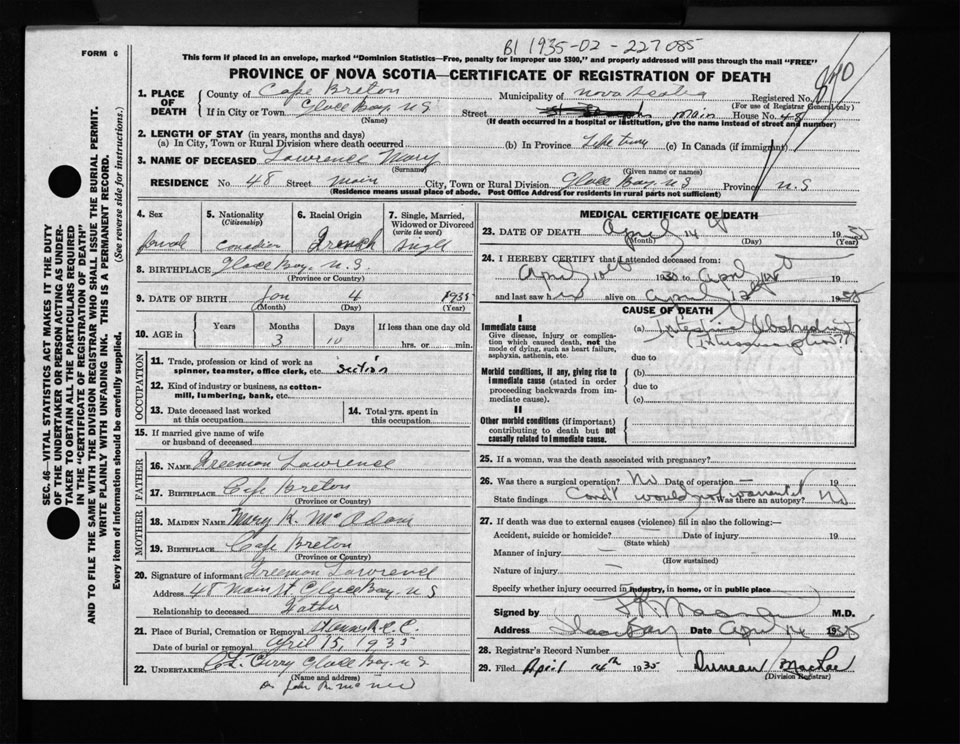 FORM 6
B1 1935-02-227085
This form if placed in an envelope, marked "Dominion Statistics—Free, penalty for improper use $300," and properly addressed will pass through the mail "FREE"
PROVINCE OF NOVA SCOTIA—CERTIFICATE OF REGISTRATION OF DEATH
SEC. 46—VITAL STATISTICS ACT MAKES IT THE DUTY
OF THE UNDERTAKER OR PERSON ACTING AS UNDER-
TAKER TO OBTAIN ALL THE PARTICULARS REQUIRED
IN THE "CERTIFICATE OF REGISTRATION OF DEATH"
AND TO FILE THE SAME WITH THE DIVISION REGISTRAR WHO SHALL ISSUE THE BURIAL PERMIT.
WRITE PLAINLY WITH UNFADING INK. THIS IS A PERMANENT RECORD.
Every item of information should be carefully supplied. (See reverse side for instructions.)
1. PLACE OF DEATH
County of Cape Breton Municipality of Nova Scotia Registered No.
(For use of Registrar General only)
If in City or Town Glace Bay, N S Street Main House No. 48
(Name) (If death occurred in a hospital or institution, give the name instead of street and number)
2. LENGTH OF STAY (in years, months and days)
(a) In City, Town or Rural Division where death occurred (b) In Province Life time (c) In Canada (if immigrant)
3. NAME OF DECEASED Lawrence Mary
(Surname) (Given name or names)
RESIDENCE No. 48 Street Main City, Town or Rural Division Glace Bay N S Province N.S
(Residence means usual place of abode. Post Office Address for residents in rural parts not sufficient)
4. Sex 5. Nationality (Citizenship) 6. Racial Origin 7. Single, Married, Widowed or Divorced (write the word)
female Canadian French Single
8. BIRTHPLACE Glace Bay N.S.
(Province or Country)
9. DATE OF BIRTH Jan 4 1935
(Month) (Day) (Year)
10. AGE in Years Months Days If less than one day old
3 10 hrs. or min.
OCCUPATION
11. Trade, profession or kind of work as
spinner, teamster, office clerk, etc.
12. Kind of industry or business, as cotton-
mill, lumbering, bank, etc.
13. Date deceased last worked
at this occupation
14. Total yrs. spent in
this occupation
15. If married give name of wife
or husband of deceased
FATHER
16. NAME Freeman Lawrence
17. BIRTHPLACE Cape Breton
(Province or Country)
MOTHER
18. MAIDEN NAME Mary
19. BIRTHPLACE Cape Breton
(Province or Country)
20. Signature of informant Freeman Lawrence
Address 48 Main St Glace Bay. N S
Relationship to deceased Father
21. Place of Burial, Cremation or Removal
Date of burial or removal April 15, 1935
22. UNDERTAKER Curry Glace Bay. N S
(Name and address)
MEDICAL CERTIFICATE OF DEATH
23. DATE OF DEATH April 14 1935
(Month) (Day) (Year)
24. I HEREBY CERTIFY that I attended deceased from:
April 19 to April 19
and last saw h alive on April 1935
CAUSE OF DEATH
I
Immediate cause
Give disease, injury or complica-
tion which caused death, not the
mode of dying, such as heart failure,
asphyxia, asthenia, etc.
(a) Intestinal Obstruction
(Intussusception)
due to
Morbid conditions, if any, giving rise to
immediate cause (stated in order
proceeding backwards from im-
mediate cause).
(b)
due to
(c)
II
Other morbid conditions (if important)
contributing to death but not
causally related to immediate cause.
25. If a woman, was the death associated with pregnancy?
26. Was there a surgical operation? No Date of operation — 19
State findings Cond't would not warrant Was there an autopsy? No
27. If death was due to external causes (violence) fill in also the following:—
Accident, suicide or homicide? Date of injury 19
(State which)
Manner of injury
(How sustained)
Nature of injury
Specify whether injury occurred in industry, in home, or in public place
Signed by M.D.
Address Glace Bay Date April 14 1935
28. Registrar's Record Number
29. Filed April 14th 1935 Duncan
(Division Registrar)